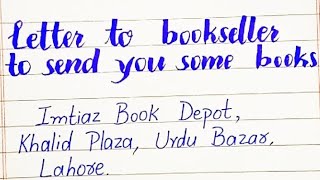 Letter to bookseller
to send you some books
Imtiaz Book Depot,
Khalid Plaza, Urdu Bazar,
Lahore.